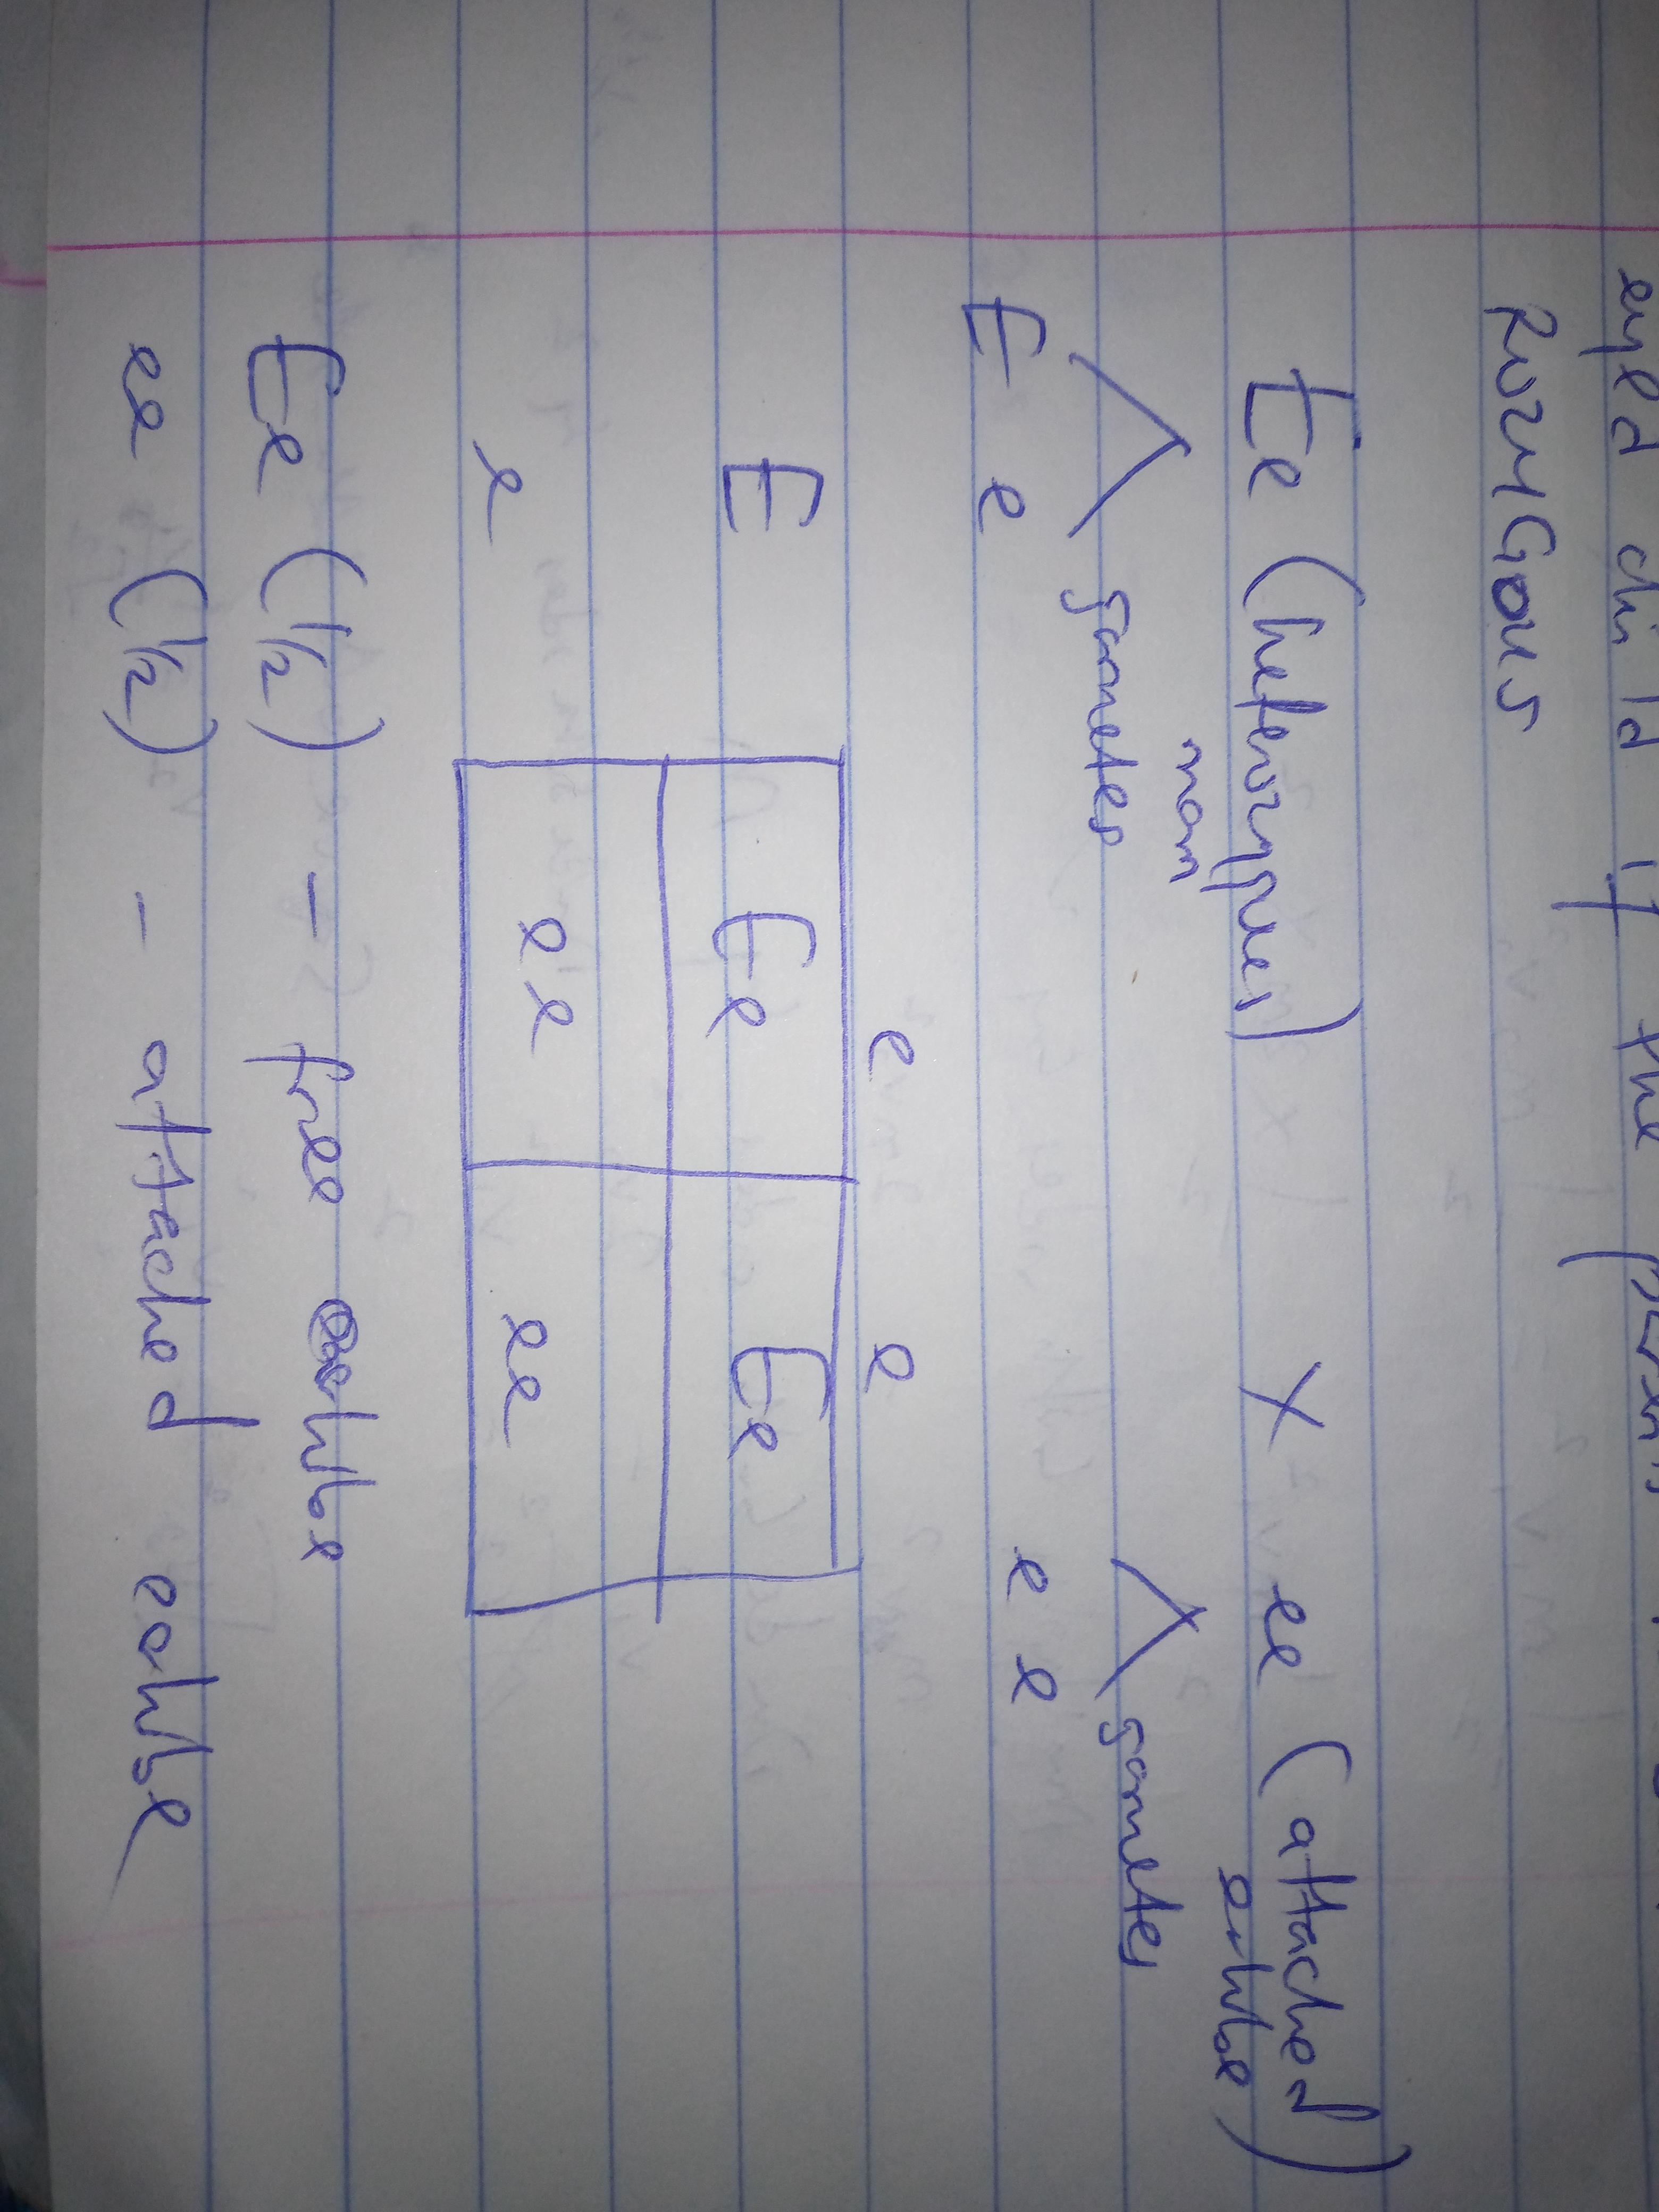 eyed child if the parent
ROZYGOUS
Ee (heterozygues) X ee (attached
man earlobe)
gametes gametes
E e e e
e e
E Ee Ee
e ee ee
Ee (1/2) - free earlobe
ee (1/2) - attached earlobe